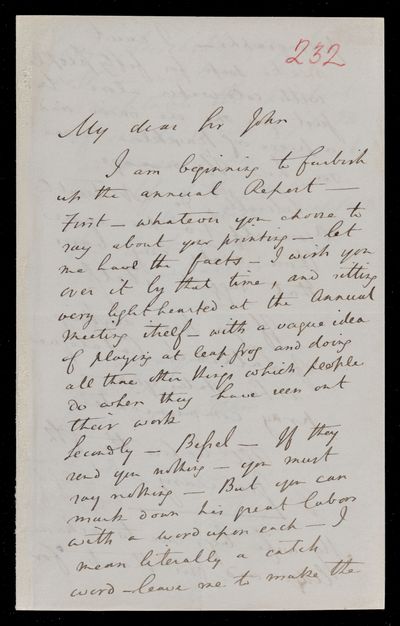 232
My dear Sir John
I am beginning to furbish
up the annual Report —
First — whatever you choose to
say about your printing — let
me have the facts — I wish you
over it by that time, and sitting
very lighthearted at the Annual
Meeting itself — with a vague idea
of playing at leap frog and doing
all those other things which people
do when they have seen out
their work
Secondly — Bessel — If they
send you nothing — you must
say nothing — But you can
mark down his great labors
with a word upon each — I
mean literally a catch
word — leave me to make the